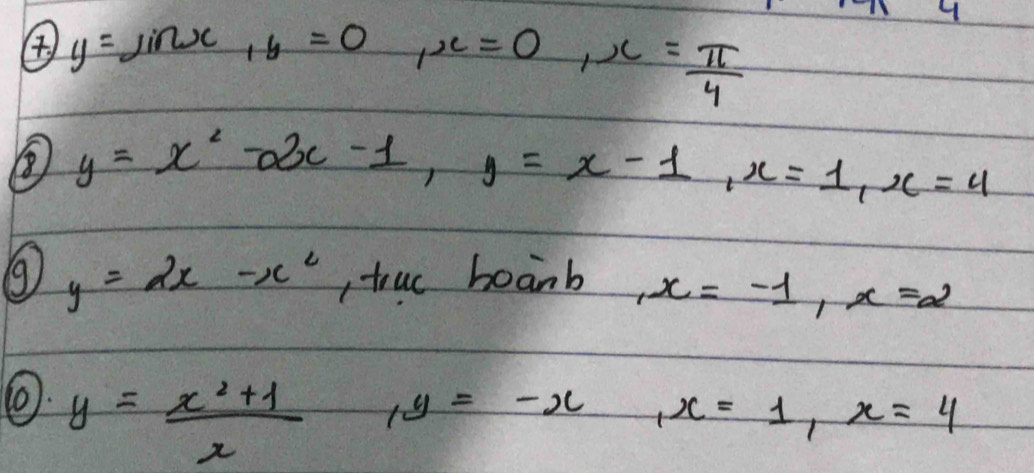 7. y = sinx , y = 0 , x = 0 , x = π/4
8 y = x² - 2x - 1 , y = x - 1 , x = 1 , x = 4
9 y = 2x - x² , trục hoành , x = -1 , x = 2
10. y = (x² + 1)/x , y = -x , x = 1 , x = 4